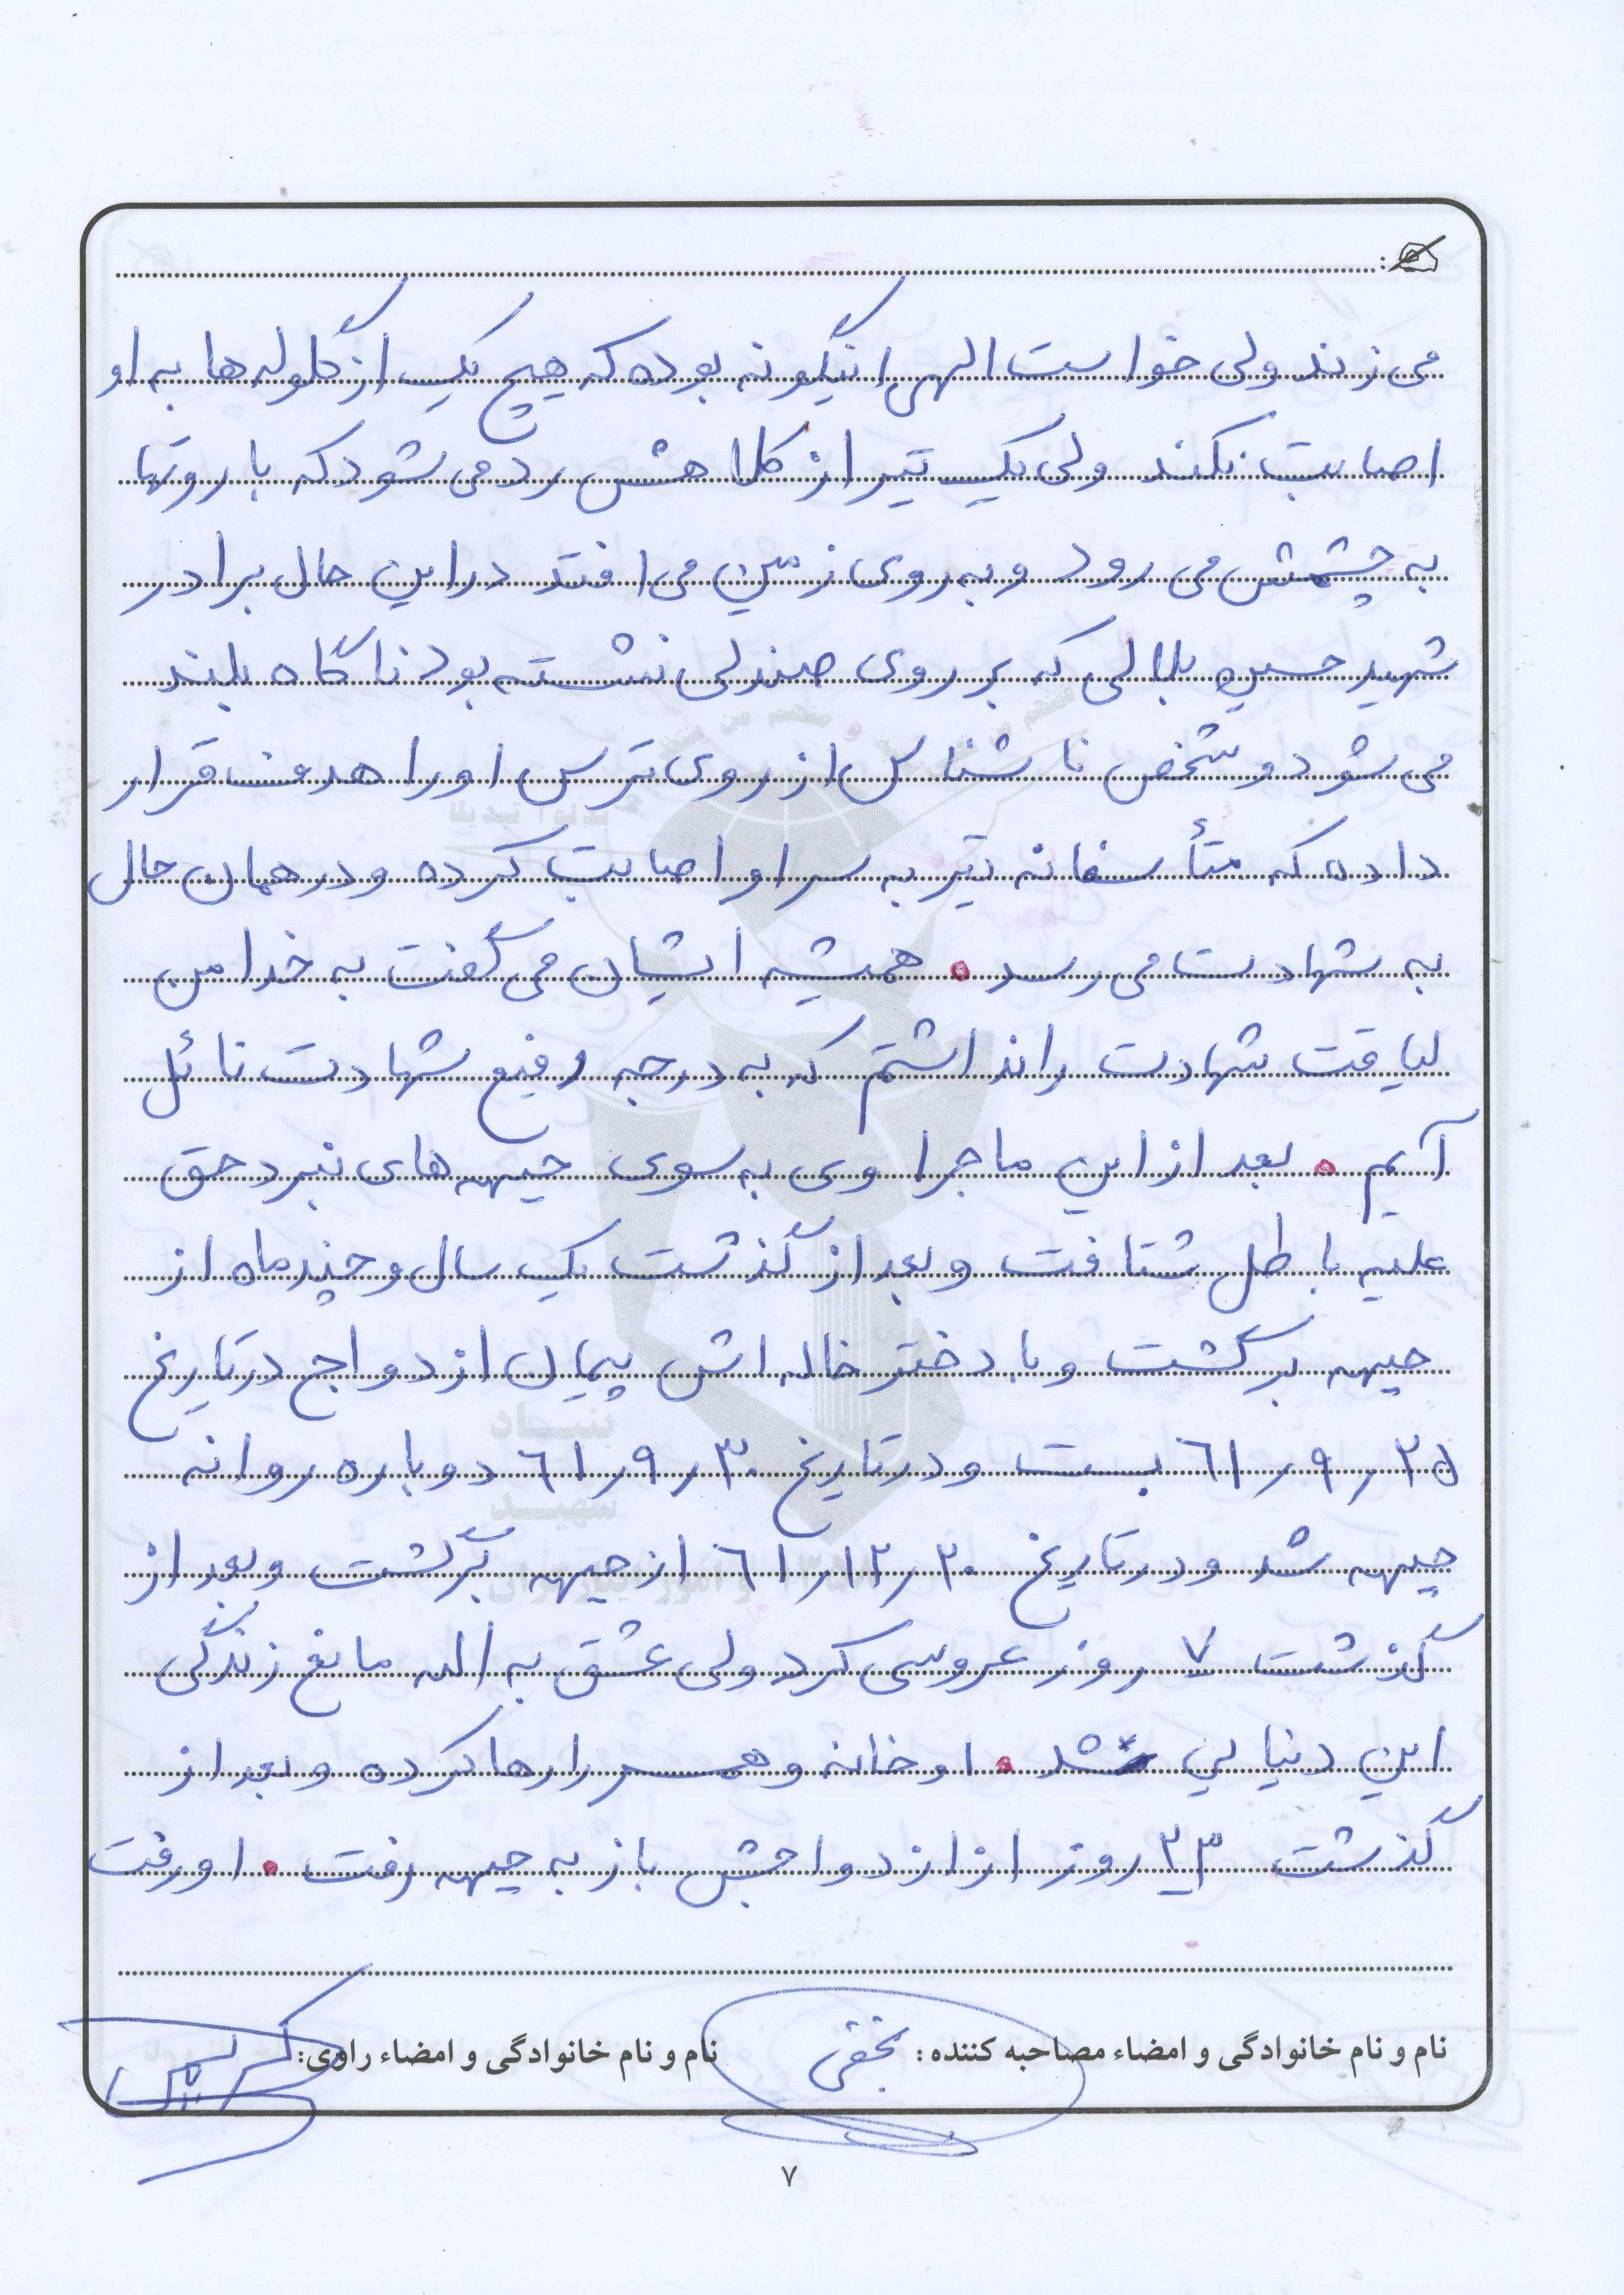 می زند ولی خواست الهی اینگونه بوده که هیچ یک از گلوله ها به او
اصابت نکند ولی یک تیر از کلاهش رد می شود که باروتها
به چشمش می رود و به روی زمین می افتد در این حال برادر
شهید حسین بلالی که بر روی صندلی نشسته بود ناگاه بلند
می شود و شخص ناشناس از روی ترس او را هدف قرار
داده که متأسفانه تیر به سر او اصابت کرده و در همان حال
به شهادت می رسد. همیشه ایشان می گفت به خدا من
لیاقت شهادت را نداشتم که به درجه رفیع شهادت نائل
آیم. بعد از این ماجرا وی به سوی جبهه های نبرد حق
علیه باطل شتافت و بعد از گذشت یک سال و چند ماه از
جبهه برگشت و با دختر خاله اش پیمان ازدواج در تاریخ
۲۵ر۹ر۶۱ بست و در تاریخ ۳۰ر۹ر۶۱ دوباره روانه
جبهه شد و در تاریخ ۲۰ر۱۲ر۶۱ از جبهه برگشت و بعد از
گذشت ۷ روز عروسی کرد ولی عشق به الله مانع زندگی
این دنیایی شد. او خانه و همسر را رها کرده و بعد از
گذشت ۲۳ روز از ازدواجش باز به جبهه رفت. او رفت
نام و نام خانوادگی و امضاء مصاحبه کننده: نام و نام خانوادگی و امضاء راوی:
۷